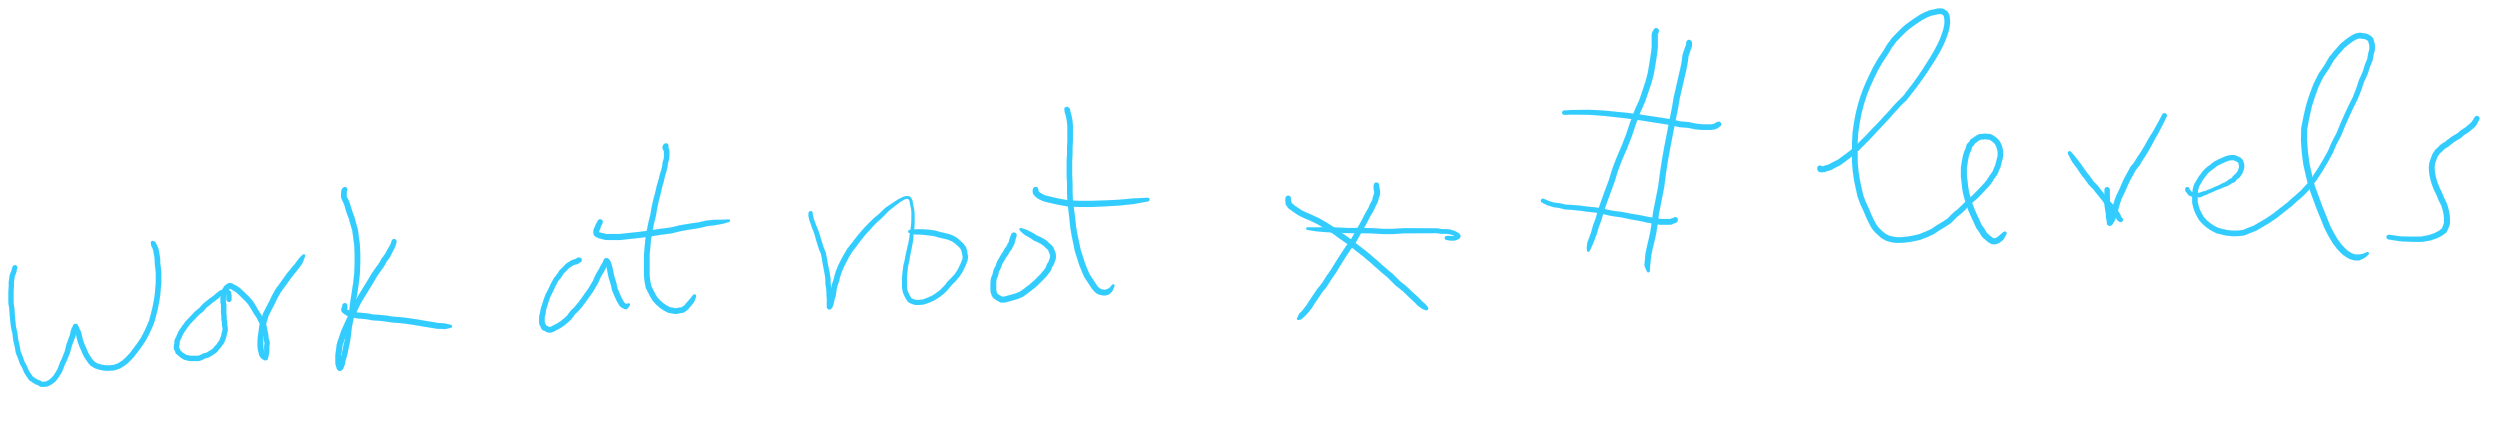 work at root * # levels